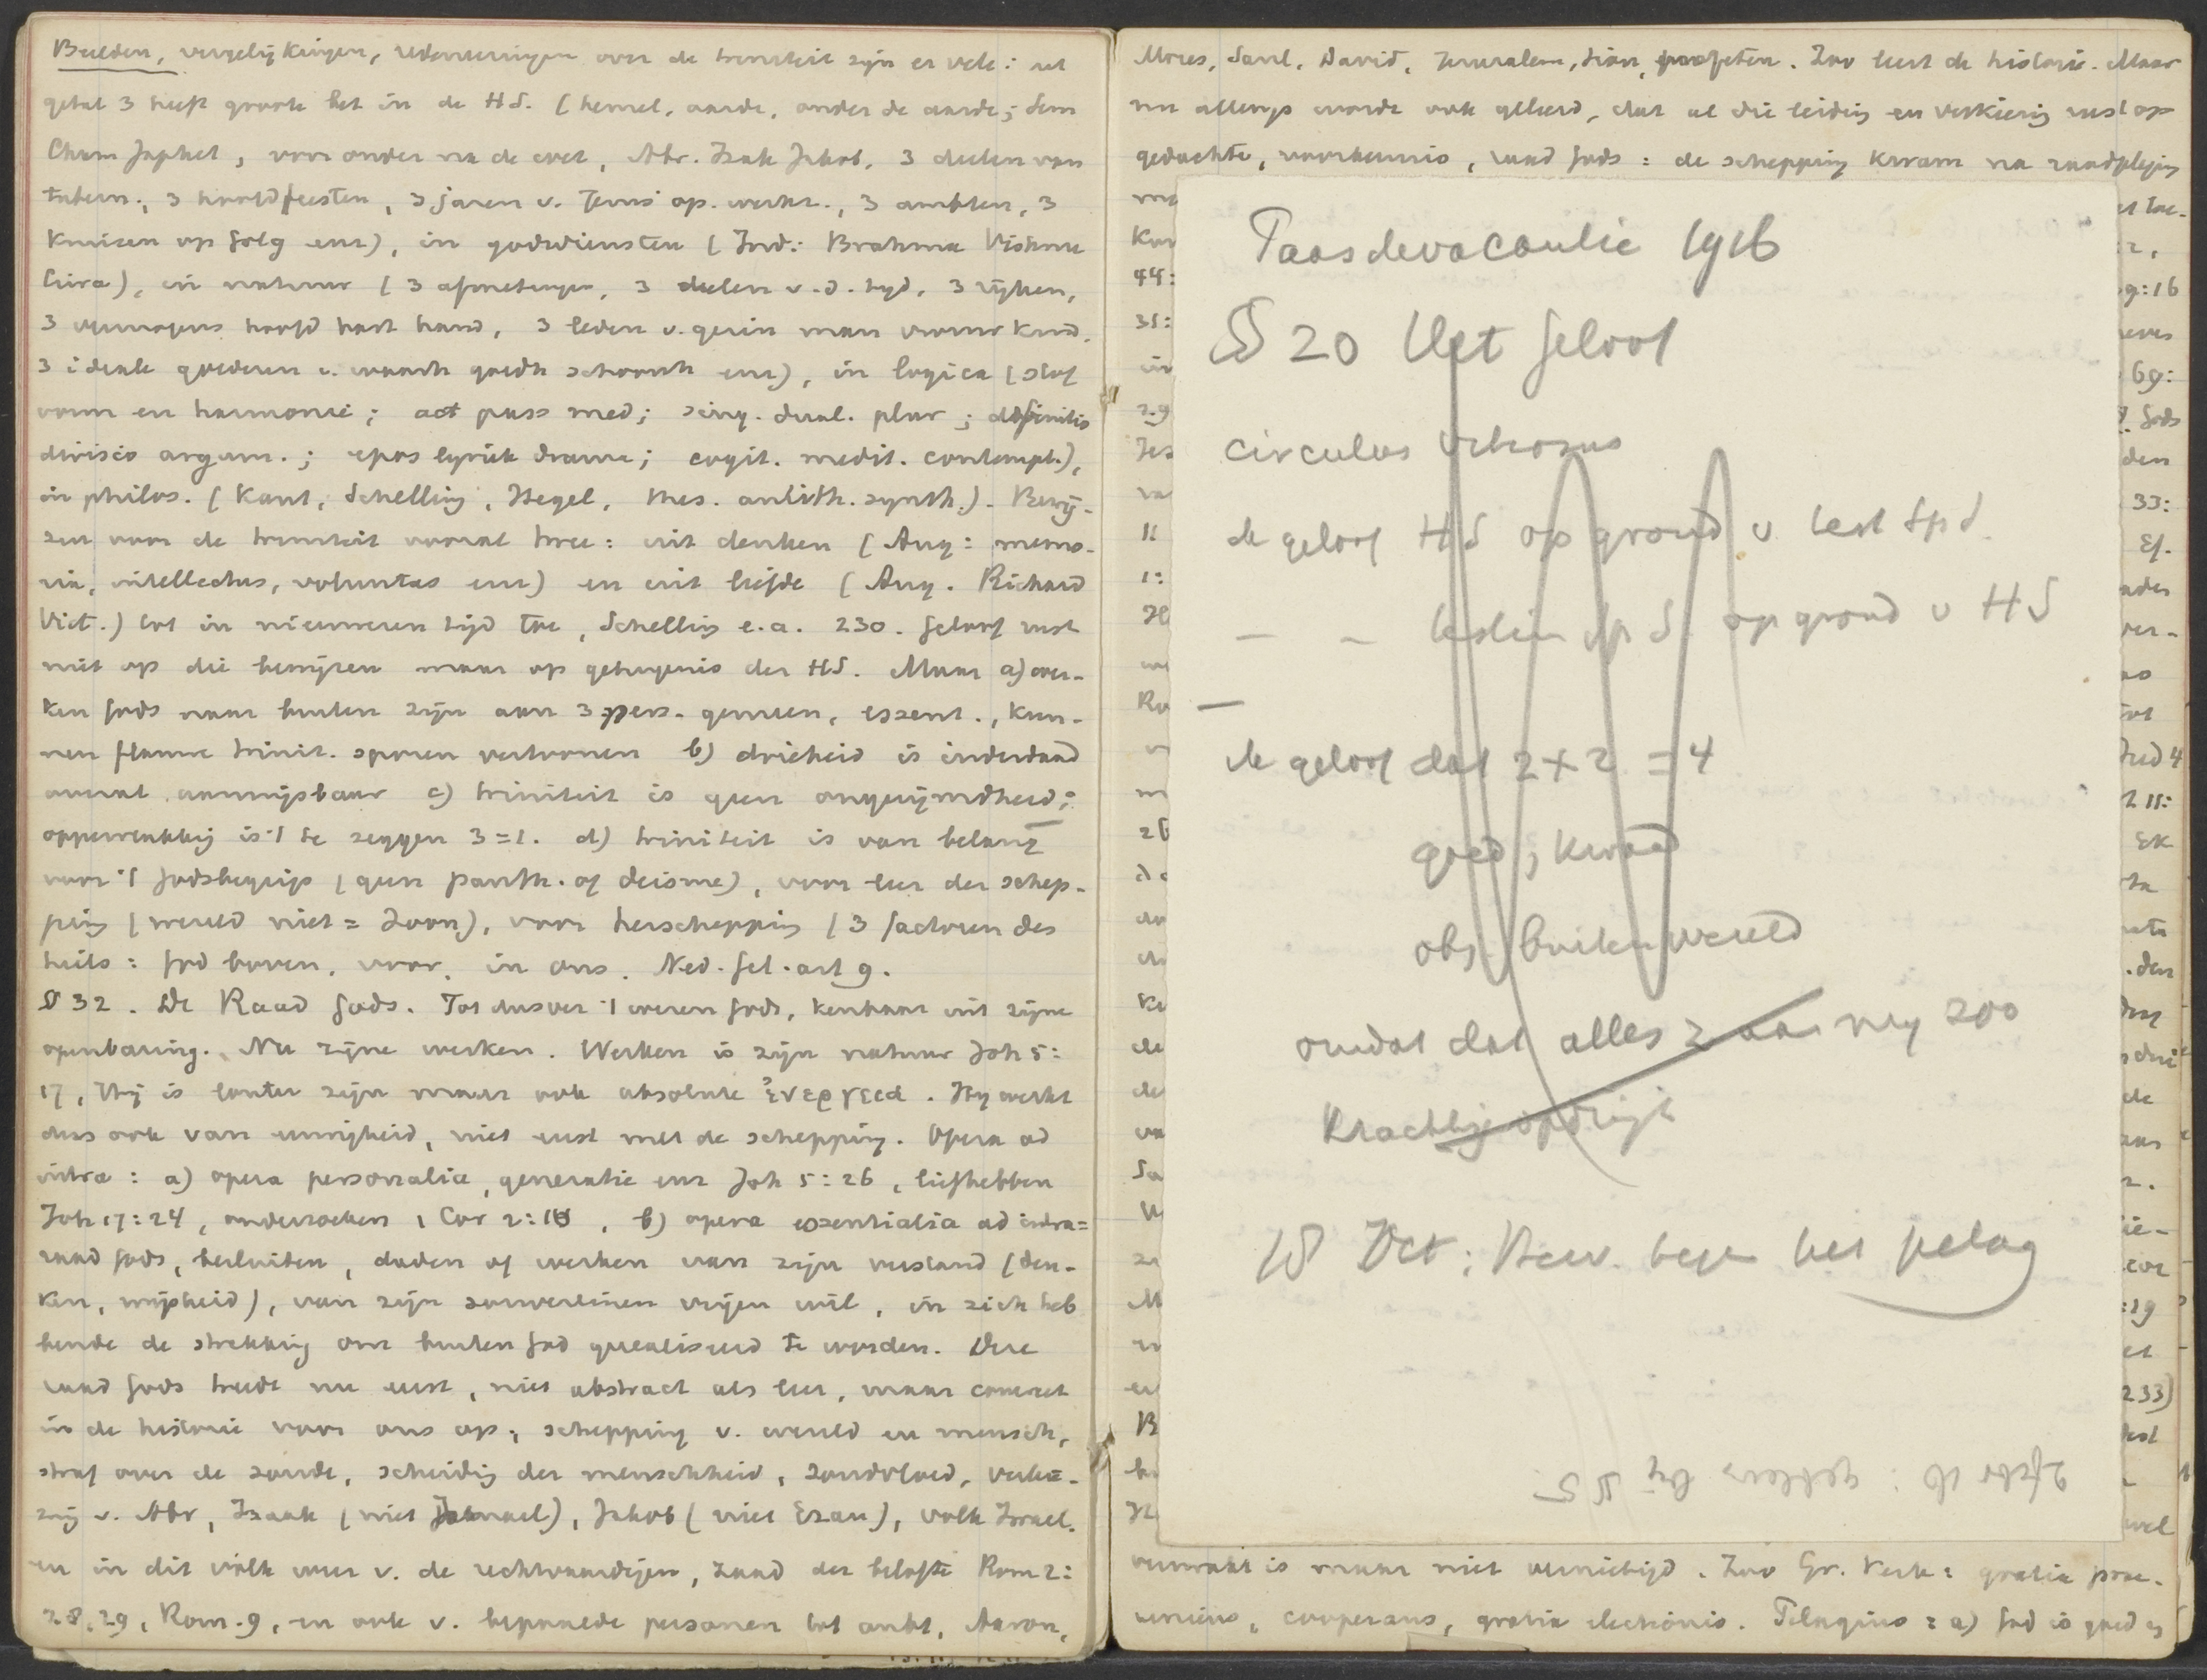 Beelden, vergelijkingen, redeneeringen over de triniteit zijn er vele: het
getal 3 heeft groote bet in de HS. (hemel, aarde, onder de aarde; Sem
Cham Japhet, voor onder na de wet, Abr. Izak Jakob, 3 deelen van
tabern., 3 hoofdfeesten, 3 jaren v. Jezus' op. werkz., 3 ambten, 3
kruisen op Golg enz), in godsdiensten (Ind.: Brahma Vishnu
Civa), in natuur (3 afmetingen, 3 deelen v.d. tijd, 3 rijken,
3 vermogens hoofd hart hand, 3 leden v. gezin man vrouw kind,
3 ideale goederen v. waarh goedh schoonh enz), in logica (stof
vorm en harmonie; act pass med; sing. dual. plur; definitio
divisio argum.; epos lyriek drama; cogit. medit. contempl.),
in philos. (Kant, Schelling, Hegel, thes. antith. synth.). Bewij-
zen voor de triniteit vooral twee: uit denken (Aug: memo-
ria, intellectus, voluntas enz) en uit liefde (Aug. Richard
Vict.) tot in nieuweren tijd toe, Schelling e.a. 230. Geloof rust
niet op die bewijzen maar op getuigenis der HS. Maar a) wer-
ken Gods naar buiten zijn aan 3 pers. gemeen, essent., kun-
nen flauwe trinit. sporen vertoonen b) drieheid is inderdaad
overal aanwijsbaar c) triniteit is geen ongerijmdheid;
oppervlakkig is 't te zeggen 3=1. d) triniteit is van belang
voor 't Godsbegrip (geen panth. of deisme), voor leer der schep-
ping (wereld niet = Zoon), voor herschepping (3 factoren des
heils: God boven, voor, in ons. Ned. Gel. art 9.
§ 32. De Raad Gods. Tot dusver 't wezen Gods, kenbaar uit zijne
openbaring. Nu zijne werken. Werken is zijn natuur Joh 5:
17, Hij is louter zijn maar ook absolute ἐνεργεια. Hij werkt
dus ook van eeuwigheid, niet eerst met de schepping. Opera ad
intra: a) opera personalia, generatie enz Joh 5:26, liefhebben
Joh 17:24, onderzoeken 1 Cor 2:10, b) opera essentialia ad intra=
raad Gods, besluiten, daden of werken van zijn verstand (den-
ken, wijsheid), van zijn souvereinen vrijen wil, in zich heb
bende de strekking om buiten God gerealiseerd te worden. Deze
raad Gods treedt nu eerst, niet abstract als leer, maar concreet
in de historie voor ons op, schepping v. wereld en mensch,
straf over de zonde, scheiding der menschheid, zondvloed, verkie-
zing v. Abr, Izaak (niet Ismael), Jakob (niet Ezau), volk Israel.
en in dit volk weer v. de rechtvaardigen, zaad der belofte Rom 2:
28,29, Rom. 9, en ook v. bepaalde personen tot ambt, Aaron,
Mozes, Saul, David, Jeruzalem, Sion, profeten. Zoo leert de historie. Maar
nu allengs wordt ook geleerd, dat al die leiding en verkiezing rust op
gedachte, voorkennis, raad Gods: de schepping kwam na raadpleging
Paasdevacantie 1916
§ 20 Het geloof
circulus vitiosus
ik geloof HS op grond v test Sp S.
— — testim Sp S. op grond v HS
—
ik geloof dat 2 x 2 = 4
goed, kwaad
obj buitenwereld
omdat dat alles z aan mij zoo
krachtig opdringt
18 Oct: Herv. tegen het pelag
verzwakt is maar niet vernietigd. Zoo Gr. Kerk: gratia prae-
veniens, cooperans, gratia electionis. Pelagius: a) God is goed en